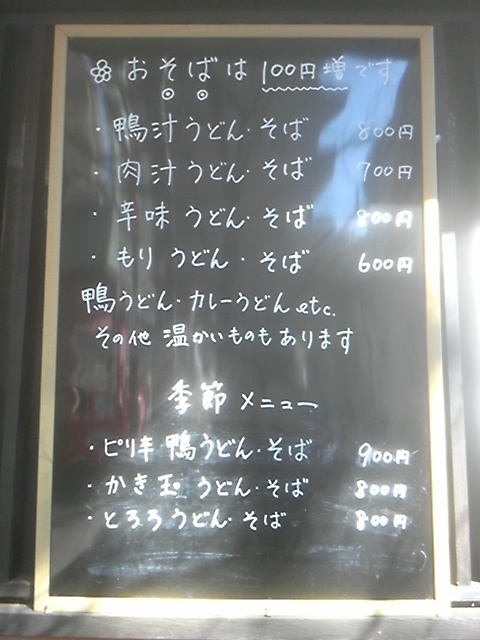 おそばは 100円増です
・鴨汁うどん・そば 800円
・肉汁うどん・そば 700円
・辛味うどん・そば 800円
・もりうどん・そば 600円
鴨うどん・カレーうどん etc.
その他 温かいものもあります
季節メニュー
・ピリ辛鴨うどん・そば 900円
・かき玉うどん・そば 800円
・とろろうどん・そば 800円